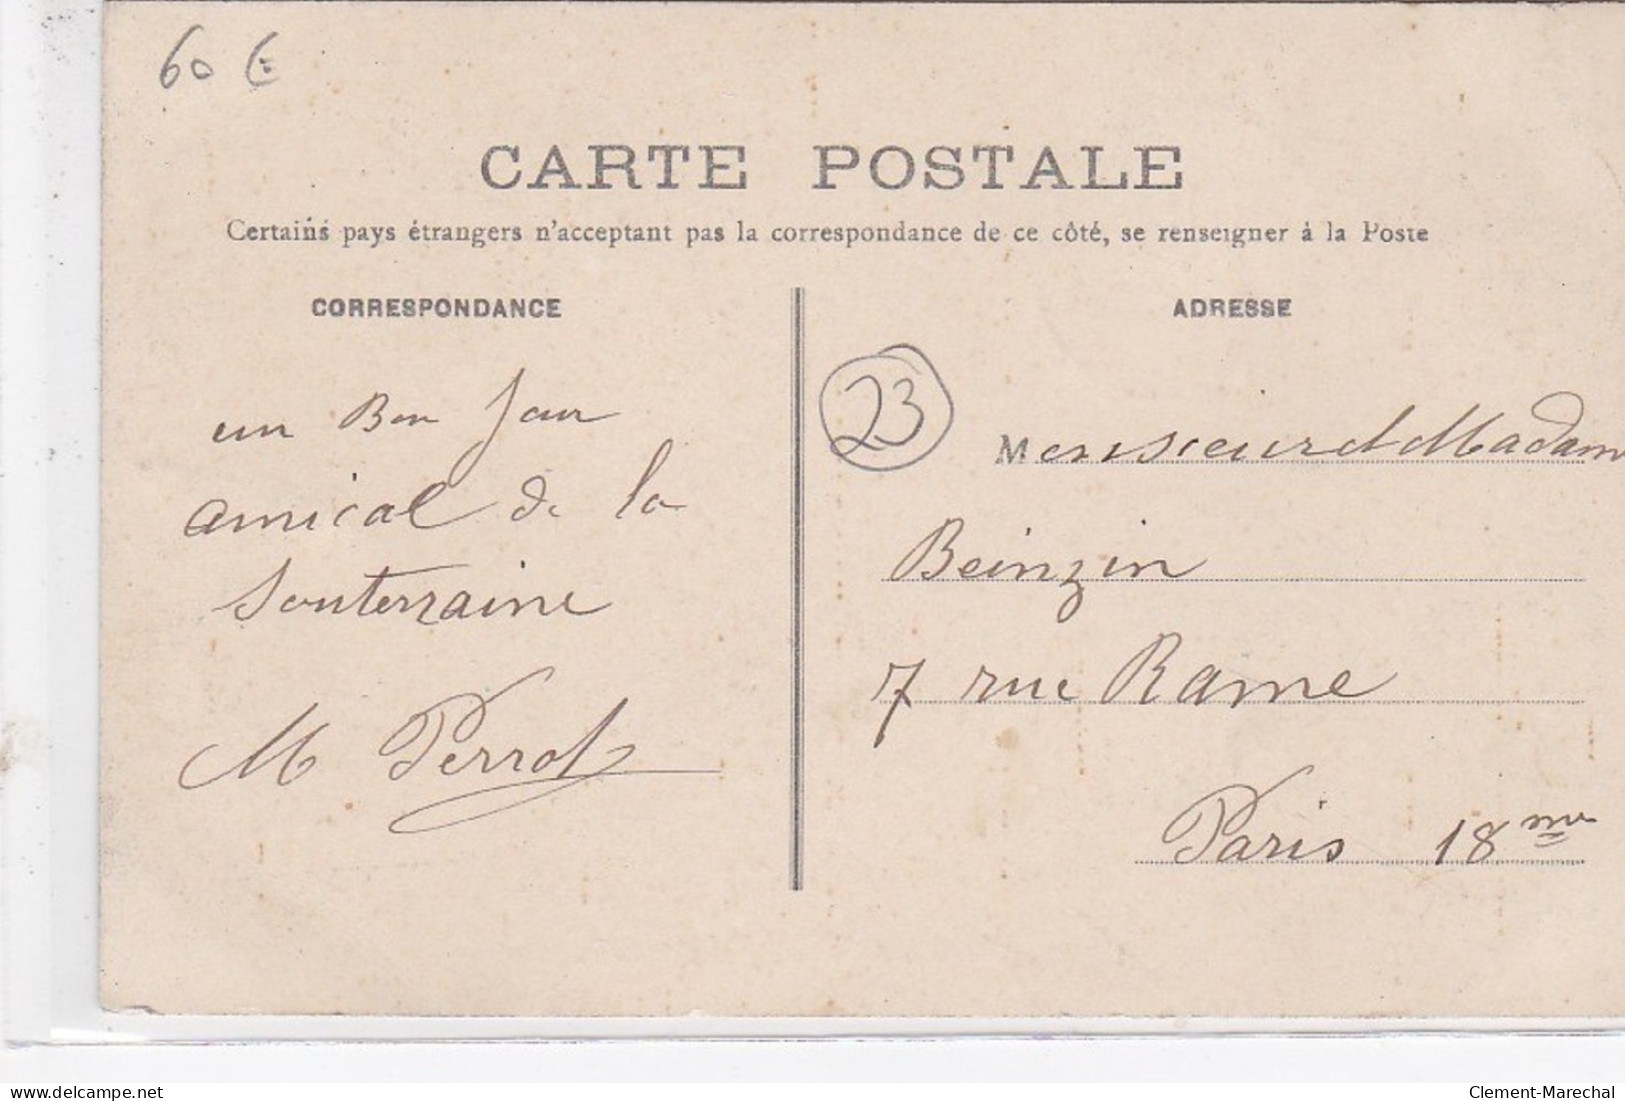 60 €
CARTE POSTALE
Certains pays étrangers n'acceptant pas la correspondance de ce côté, se renseigner à la Poste
CORRESPONDANCE
un Bon Jour
amical de la
Souterraine
M Perrot
ADRESSE
23
Monsieur et Madam
Beinzin
7 rue Rame
Paris 18me
delcampe.net
Clement-Marechal